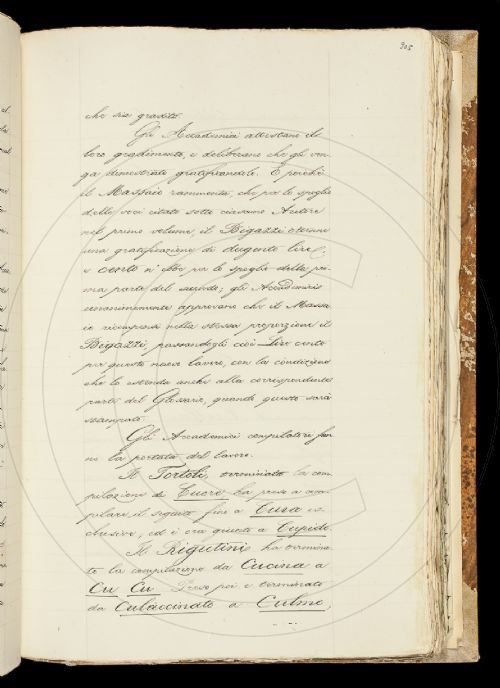 305
che sia gradito.
Gli Accademici attestano il
loro gradimento, e deliberano che gli ven-
ga dimostrato gratificandolo. E poichè
il Massaio rammenta, che per lo spoglio
delle voci citate sotto ciascuno Autore
nel primo volume, il Bigazzi ottenne
una gratificazione di dugento lire,
e cento n' ebbe per lo spoglio della pri-
ma parte del secondo; gli Accademici
unanimemente approvano che il Massa-
io ricompensi nella stessa proporzione il
Bigazzi, passandogli cioè Lire cento
per questo nuovo lavoro, con la condizione
che lo estenda anche alla corrispondente
parte del Glossario, quando questo sarà
stampato.
Gli Accademici compilatori fan-
no la portata del lavoro.
Il Tortoli, terminata la com-
pilazione di Cuore ha preso a com-
pilare il seguito fino a Cura es-
clusive, ed è ora giunto a Cupido.
Il Rigutini ha termina-
to la compilazione da Cucina a
Cu Cu. Prese poi e terminato
da Culaccinato a Culmo,